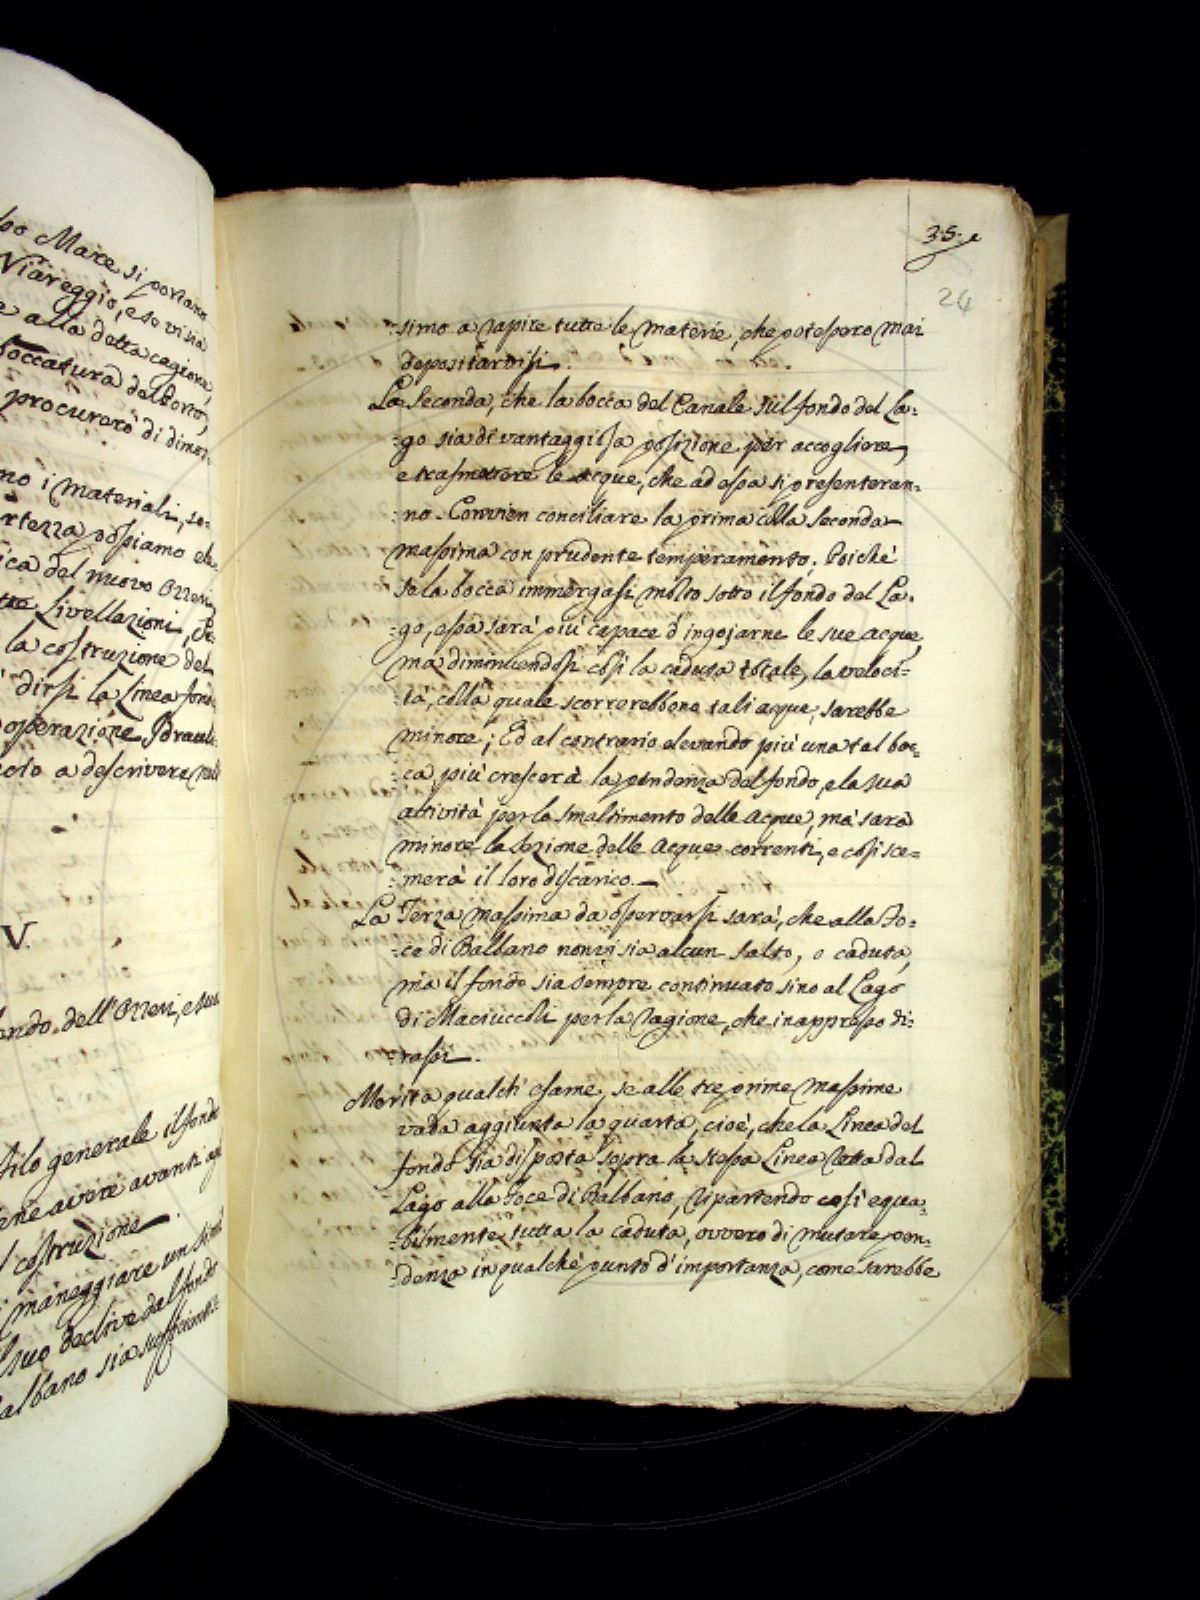 sso Mare si portano
Viareggio, e se vi sia
e alla detta cagione,
boccatura del Porto,
procurerò di dimos-
no i materiali, so-
rtezza possiamo ele-
ica del nuovo Ozzeri
tre Livellazioni, Se-
la costruzione del
dirsi la Linea fon-
operazione Idrauli-
cio a descrivere nel
V.
ondo dell'Ozzeri, e sua
filo generale il fondo
iene avere avanti agli
l costruzione.
maneggiare un simil
l suo declive dal fondo
albano sia sufficientis-
35.
24
-simo a rapire tutte le materie, che potessero mai
depositarvisi.
La Seconda, che la bocca del Canale sul fondo del La-
-go sia di vantaggiosa posizione per accogliere,
e trasmettere le Acque, che ad essa si presenteran-
-no. Convien conciliare la prima colla seconda
massima con prudente temperamento. Poichè
se la bocca immergasi molto sotto il fondo del La-
-go, essa sarà più capace d'ingojarne le sue acque,
ma diminuendosi così la caduta totale, la veloci-
-tà, colla quale scorrerebbono tali acque, sarebbe
minore; Ed al contrario elevando più una tal boc-
-ca, più crescerà la pendenza del fondo, e la sua
attività per lo smaltimento delle Acque, mà sarà
minore la Sezione delle Acque correnti, e così sce-
-merà il loro discarico.
La Terza massima da osservarsi sarà, che alla Fo-
-ce di Balbano non vi sia alcun salto, o caduta,
mà il fondo sia sempre continuato sino al Lago
di Maciuccoli per la ragione, che in appresso di-
-rassi.
Merita qualch'esame, se alle tre prime massime
vada aggiunta la quarta, cioè, che la Linea del
fondo sia disposta sopra la stessa Linea retta dal
Lago alla Foce di Balbano, ripartendo così equa-
-bilmente tutta la caduta, ovvero di mutare pen-
-denza in qualche punto d'importanza, come sarebbe